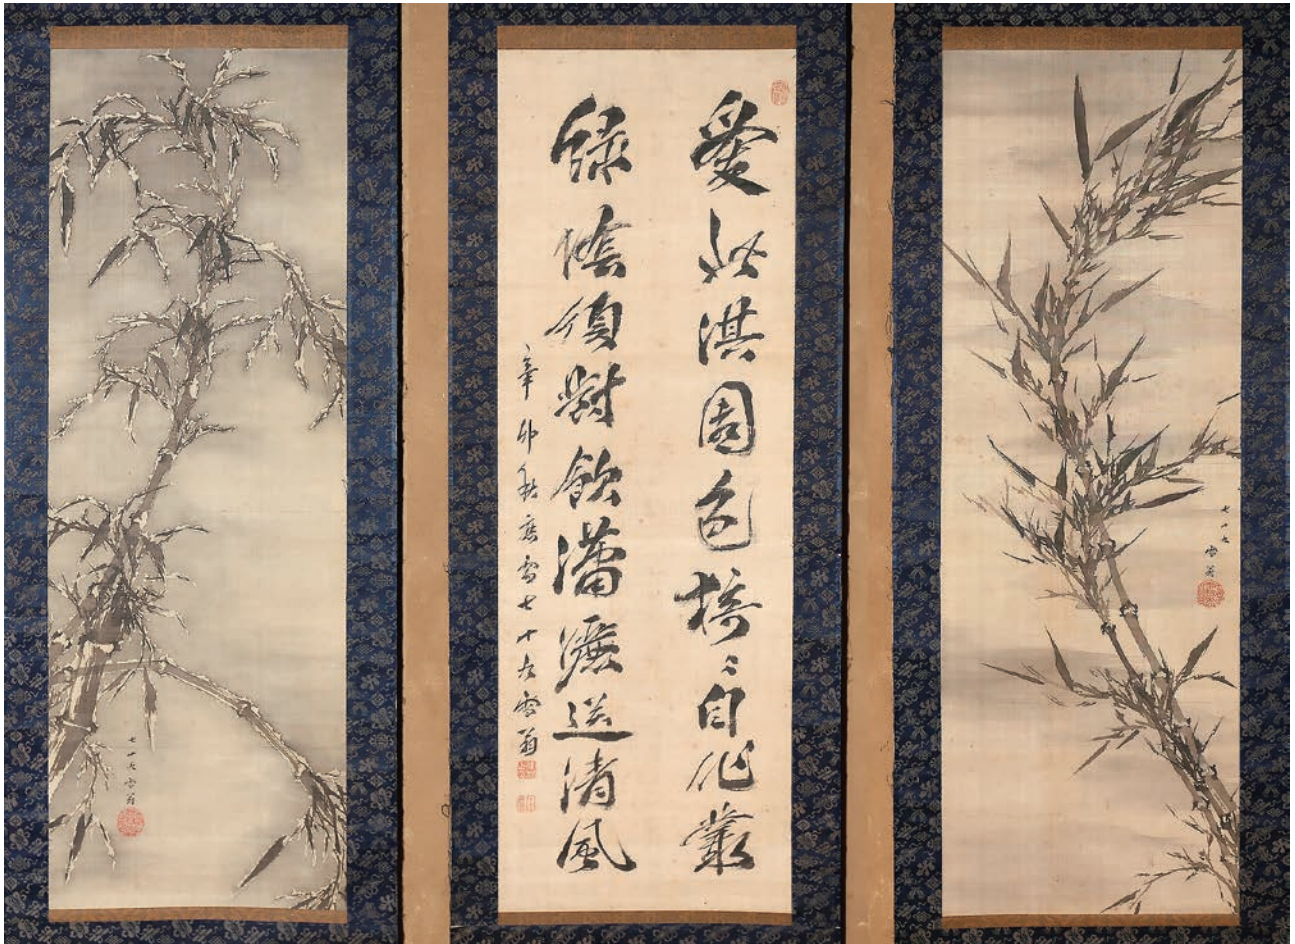 七十九
雪翁
愛此淇園色猗々自作叢
綠陰須對飲瀟灑送清風
辛卯秋應需七十九雪翁
七十九雪翁